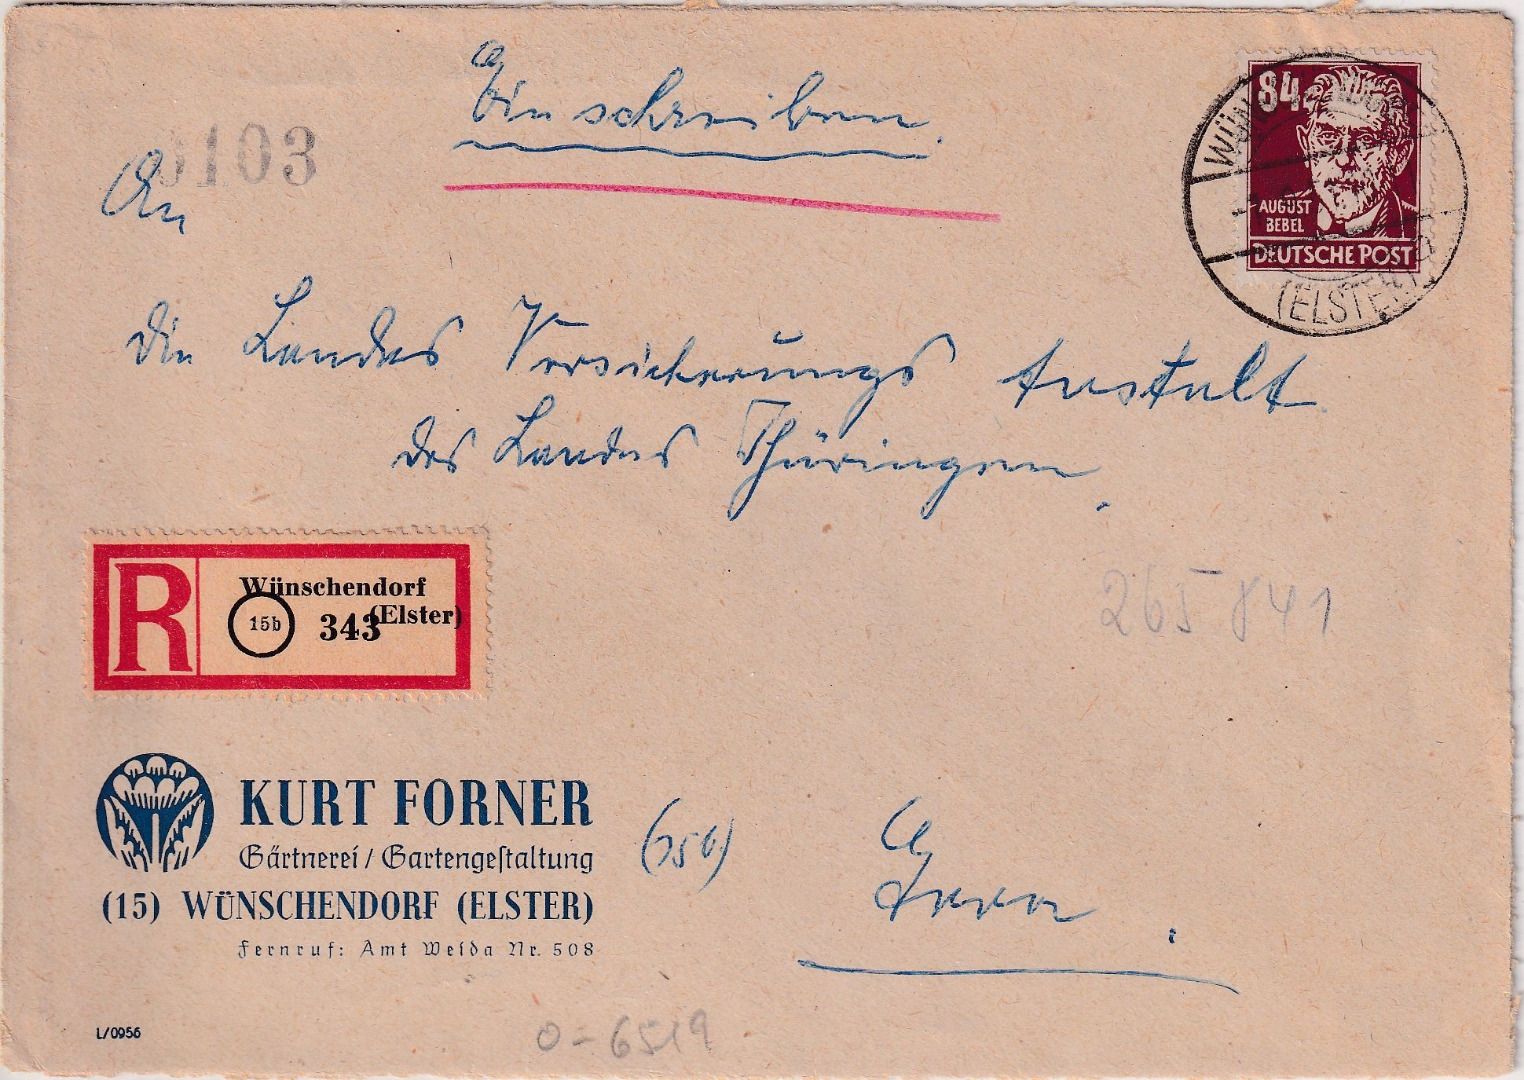 Einschreiben.
103
An
84
AUGUST
BEBEL
DEUTSCHE POST
(ELSTER)
die Landes Versicherungs Anstalt
des Landes Thüringen,
R
Wünschendorf
(Elster)
15b
343
265 841
KURT FORNER
Gärtnerei / Gartengeſtaltung
(15) WÜNSCHENDORF (ELSTER)
Fernruf: Amt Weida Nr. 508
(15b)
Gera.
L/0956
O-6519